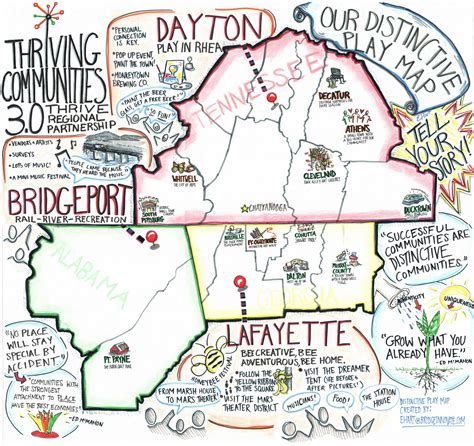 THRIVING
COMMUNITIES
3.0
THRIVE
REGIONAL
PARTNERSHIP
DAYTON
PLAY IN RHEA
• PERSONAL
CONNECTION
IS KEY.
• POP UP EVENT,
"PAINT THE TOWN"
• MONKEYTOWN
BREWING CO.
"PAINT THE BEER
GLASS,
GET A FREE BEER"
"SO FUN!"
OUR DISTINCTIVE
PLAY MAP
TELL
YOUR
STORY!
• VENDORS + ARTISTS
• SURVEYS
• LOTS OF MUSIC!
• A MINI MUSIC FESTIVAL
"PEOPLE CAME BECAUSE
THEY HEARD THE MUSIC!"
BRIDGEPORT
RAIL-RIVER-RECREATION
TENNESSEE
DECATUR
ATHENS
WHITWELL
CLEVELAND
SOUTH
PITTSBURG
CHATTANOOGA
DUCKTOWN
ALABAMA
GEORGIA
FT. OGLETHORPE
COHUTTA
DALTON
MURRAY
COUNTY
FT. PAYNE
"SUCCESSFUL
COMMUNITIES ARE
DISTINCTIVE
COMMUNITIES."
AUTHENTICITY
UNIQUENESS
"GROW WHAT YOU
ALREADY HAVE."
- ED MCMAHON
"NO PLACE
WILL STAY
SPECIAL BY
ACCIDENT."
"COMMUNITIES WITH
THE STRONGEST
ATTACHMENT TO PLACE
HAVE THE BEST ECONOMIES"
- ED MCMAHON
LAFAYETTE
BEE CREATIVE, BEE
ADVENTUROUS, BEE HOME.
HONEYBEE FESTIVAL
"FROM MARSH HOUSE
TO MARS THEATER"
• FOLLOW THE
YELLOW RIBBON
TO THE SQUARE
• VISIT THE MARS
THEATER DISTRICT
• VISIT THE DREAMER
TENT (BE BEFORE
AFTER PICTURES)
MUSICIANS!
FOOD!
THE STATION
HOUSE
DISTINCTIVE PLAY MAP
CREATED BY: